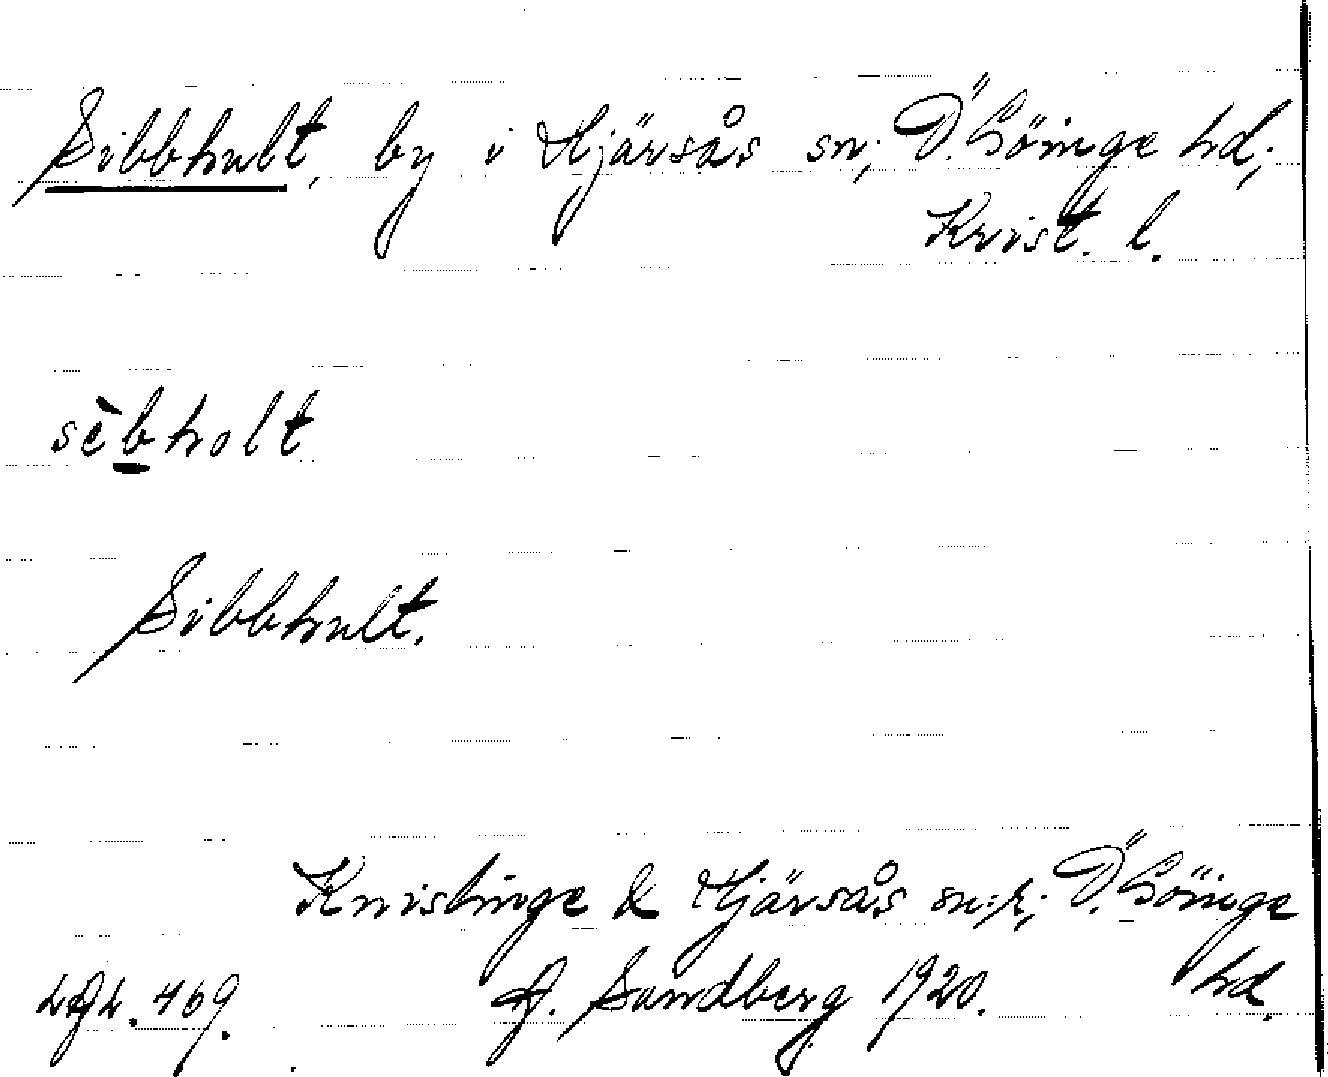 Sibbhult, by i Hjärsås sn, Ö. Göinge hd,
Krist. l.
sèb̲holt
Sibbhult.
Knislinge & Hjärsås sn:r, Ö. Göinge
hd.
A. Sandberg 1920.